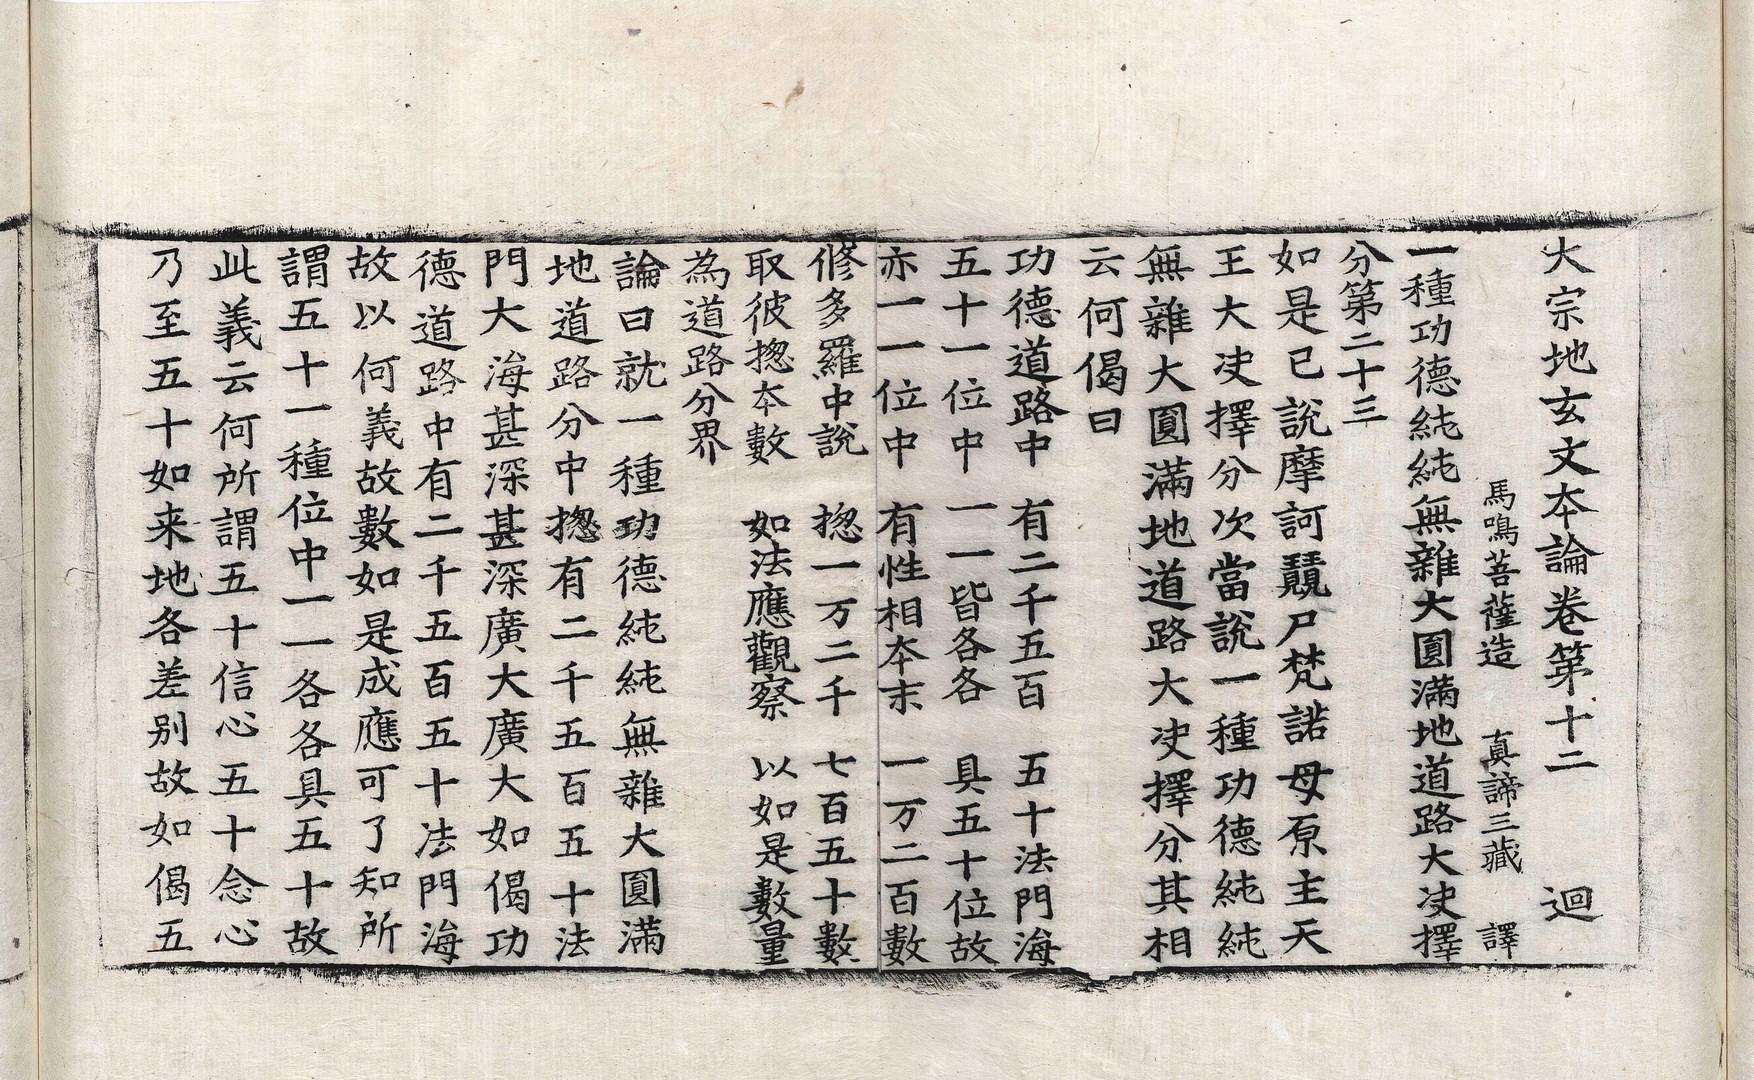 大宗地玄文本論卷第十二　迴
馬鳴菩薩造　真諦三藏　譯
一種功德純純無雜大圓滿地道路大决擇
分第二十三
如是已說摩訶䫘尸梵諾母原主天
王大决擇分次當說一種功德純純
無雜大圓滿地道路大决擇分其相
云何偈曰
功德道路中　有二千五百　五十法門海
五十一位中　一一皆各各　具五十位故
亦一一位中　有性相本末　一万二百數
修多羅中說　揔一万二千　七百五十數
取彼揔本數　如法應觀察　以如是數量
為道路分界
論曰就一種功德純純無雜大圓滿
地道路分中揔有二千五百五十法
門大海甚深甚深廣大廣大如偈功
德道路中有二千五百五十法門海
故以何義故數如是成應可了知所
謂五十一種位中一一各各具五十故
此義云何所謂五十信心五十念心
乃至五十如来地各差别故如偈五